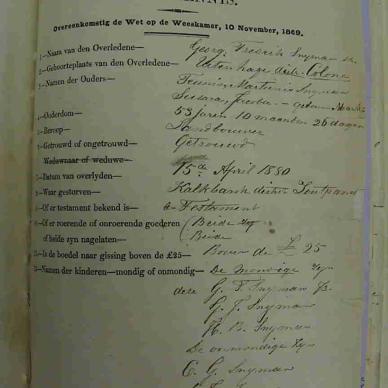 NNIS.
Overeenkomstig de Wet op de Weeskamer, 10 November, 1869.
1—Naam van den Overledene— Georg Frederik Snyman
2—Geboorteplaats van den Overledene— Uitenhage distr. Colonie
3—Namen der Ouders— Snyman
Susara Jacoba — geboren
4—Ouderdom— 53 jaren 10 maanden 26 dagen
5—Beroep— Landbouwer
6—Getrouwd of ongetrouwd— Getrouwd
Weduwnaar of weduwe—
7—Datum van overlyden— 15de April 1880
8—Waar gestorven— Kalkbank distr. Zoutpans
9—Of er testament bekend is— Testament
Of er roerende of onroerende goederen (Beide
of beide zyn nagelaten— Beide
Is de boedel naar gissing boven de £25— Boven de £25
Namen der kinderen—mondig of onmondig— De mondige zyn
deze G. F. Snyman
G. J. Snyman
H. B. Snyman
De onmondige zyn
C. G. Snyman